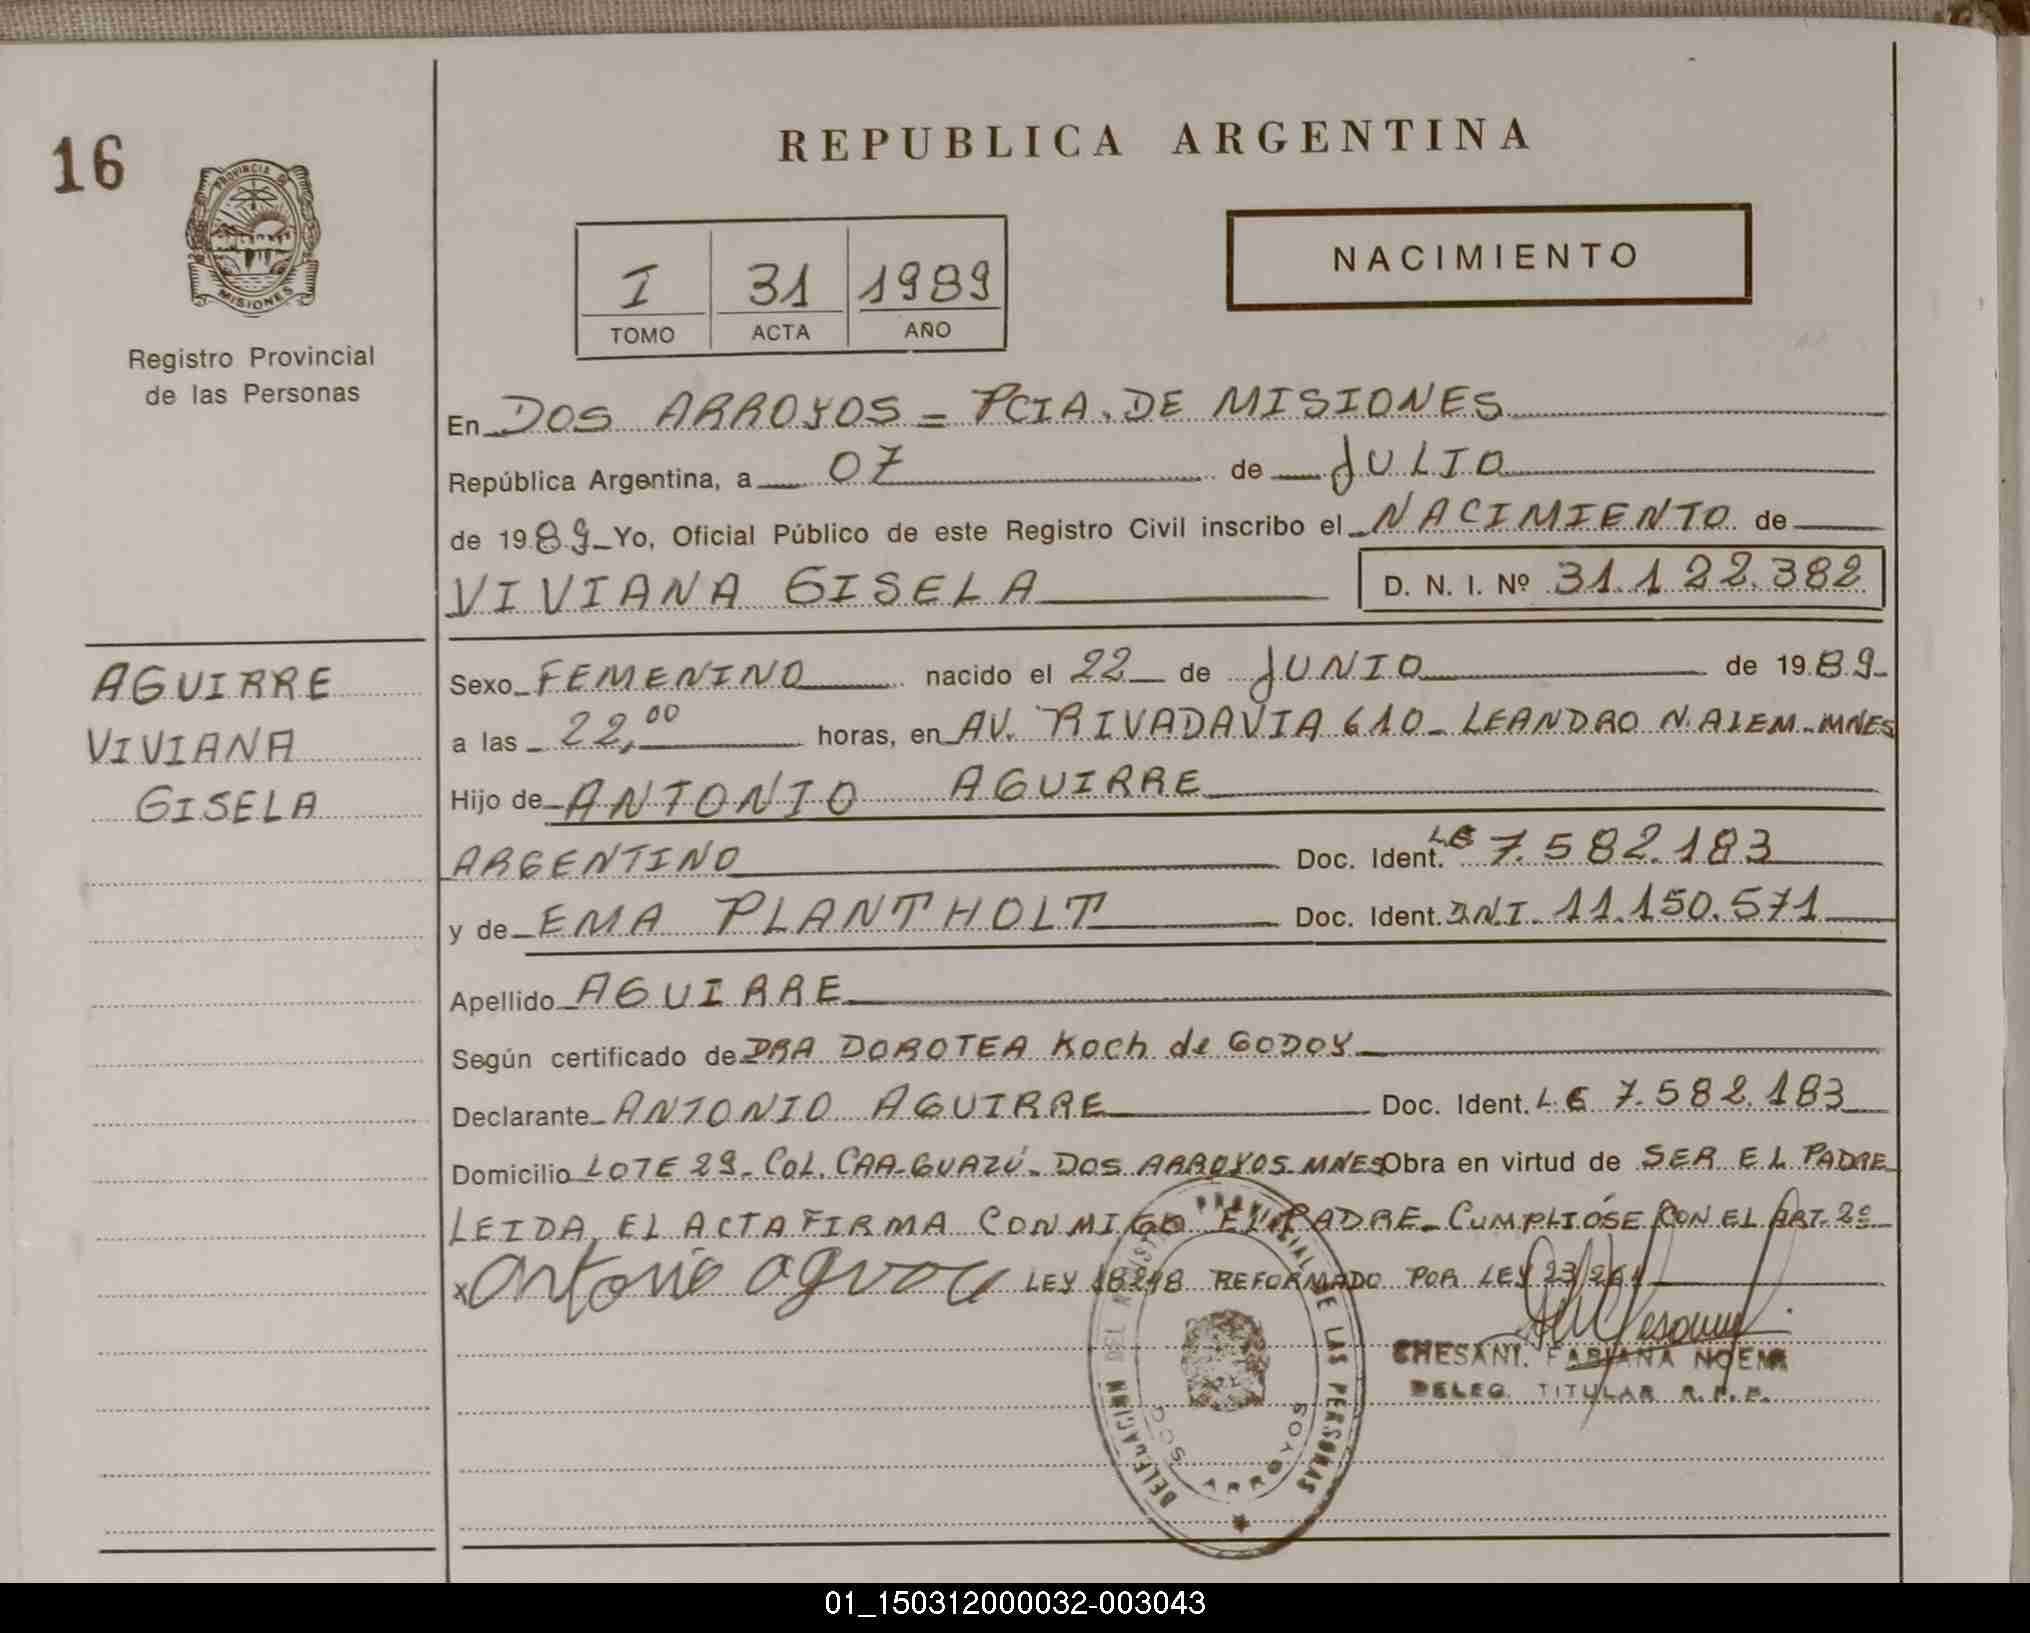 16
PROVINCIA DE
MISIONES
Registro Provincial
de las Personas
REPUBLICA ARGENTINA
I 31 1989
TOMO ACTA AÑO
NACIMIENTO
En DOS ARROYOS = PCIA. DE MISIONES
República Argentina, a 07 de JULIO
de 1989 Yo, Oficial Público de este Registro Civil inscribo el NACIMIENTO de
VIVIANA GISELA D. N. I. Nº 31.122.382
AGUIRRE
VIVIANA
GISELA
Sexo FEMENINO nacido el 22 de JUNIO de 1989
a las 22,00 horas, en AV. RIVADAVIA 610 - LEANDRO N. ALEM - MNES
Hijo de ANTONIO AGUIRRE
ARGENTINO Doc. Ident. LE 7.582.183
y de EMA PLANTHOLT Doc. Ident. DNI. 11.150.571
Apellido AGUIRRE
Según certificado de DRA DOROTEA Koch de GODOY
Declarante ANTONIO AGUIRRE Doc. Ident. LE 7.582.183
Domicilio LOTE 29 - COL. CAA-GUAZÚ - DOS ARROYOS MNES Obra en virtud de SER EL PADRE
LEIDA EL ACTA FIRMA CONMIGO EL PADRE - CUMPLIÓSE CON EL ART. 2º
x Antonio Aguirre LEY 18248 REFORMADO POR LEY 23/264
CHESANI, FABIANA NOEMI
DELEG. TITULAR R.P.P.
DELEGACION DEL REGISTRO PROVINCIAL DE LAS PERSONAS
DOS ARROYOS
01_150312000032-003043